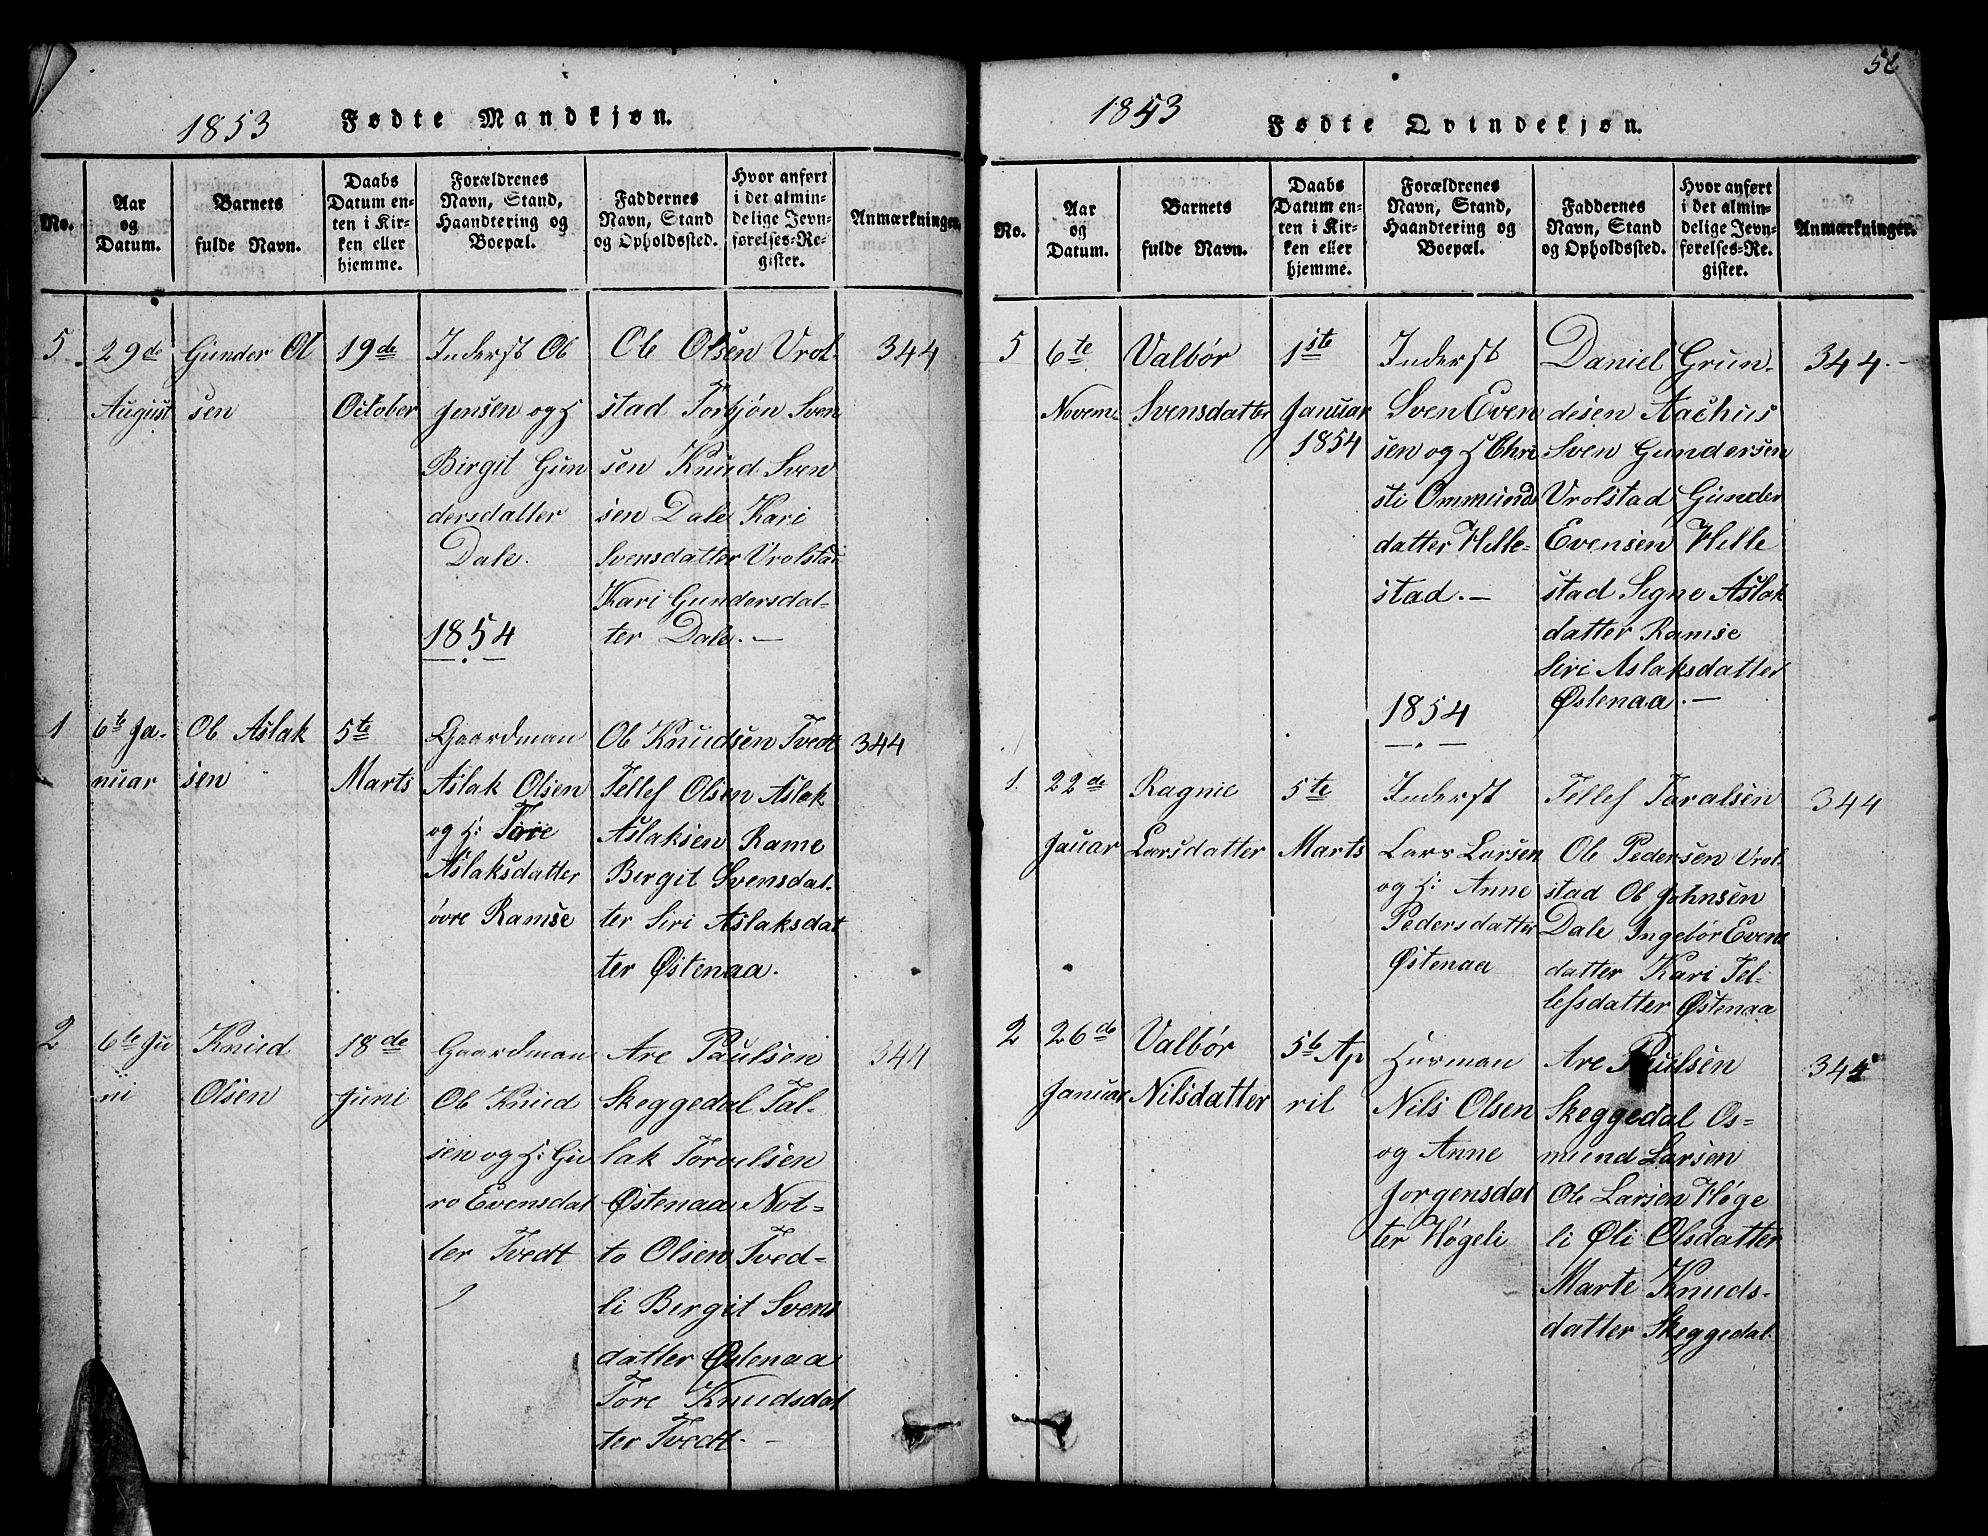 1853 Fødte Mandkjøn.
No.
Aar
og
Datum.
Barnets
fulde Navn.
Daabs
Datum en-
ten i Kir-
ken eller
hjemme.
Forældrenes
Navn, Stand,
Haandtering og
Boepæl.
Faddernes
Navn, Stand
og Opholdssted.
Hvor anført
i det almin-
delige Jevn-
førelses-Re-
gister.
Anmærkninger.
5
29de
August
Gunder Ol
sen
19de
October
Inderst Ole
Jensen og H
Birgit Gun
dersdatter
Dale.
Ole Olsen Vrol-
stad Torbjön Sven
sen Knud Sven
sen Dale Kari
Svensdatter Vrolstad
Kari Gundersdat-
ter Dale.—
344
1854
1
6te Ja-
nuar
Ole Aslak
sen
5te
Marts
Gaardman
Aslak Olsen
og H: Tore
Aslaksdatter
övre Ramse
Ole Knudsen Tvedt
Tellef Olsen Aslak
Aslaksen Rame
Bergit Svensdat-
ter Siri Aslaksdat
ter Østenaa.
344
2
6te Ju
ni
Knud
Olsen
18de
Juni
Gaardman
Ole Knud
sen og H: Gu
ro Evensdat
ter Tvedt
Are Paulsen
Skeggedal Tal-
lak Torvelsen
Østenaa Not-
to Olsen Tved-
li Birgit Svens
datter Østenaa
Tore Knudsdat
ter Tvedt.—
344
1853 Fødte Qvindekjøn.
No.
Aar
og
Datum.
Barnets
fulde Navn.
Daabs
Datum en-
ten i Kir-
ken eller
hjemme.
Forældrenes
Navn, Stand,
Haandtering og
Boepæl.
Faddernes
Navn, Stand
og Opholdssted.
Hvor anført
i det almin-
delige Jevn-
førelses-Re-
gister.
Anmærkninger.
5
6te
Novem
Valbør
Svensdatter
1ste
Januar
1854
Inderst
Sven Even
sen og H Chri
sti Ommunds
datter Hille-
stad.—
Daniel Grun-
desen Aachus
Sven Gundersen
Vrolstad Gunder
Evensen Hille
stad Signe Aslak
datter Ramse
Siri Aslaksdatter
Østenaa.—
344.—
1854
1.
22de
Jauar
Ragnie
Larsdatter
5te
Marts
Inderst
Lars Larsen
og H: Anne
Pedersdatter
Østenaa
Tellef Taralsen
Ole Pedersen Vrol
stad Ole Johnsen
Dale Ingebör Evens
datter Kari Tel-
lefsdatter Østenaa
344
2
26de
Januar
Valbør
Nilsdatter
5te Ap
ril
Husman
Nils Olsen
og Anne
Jorgensdat
ter Høgeli
Are Paulsen
Skeggedal Os-
mund Larsen
Ole Larsen Høge
li Øli Olsdatter
Marte Knuds-
datter Skeggedal.
344